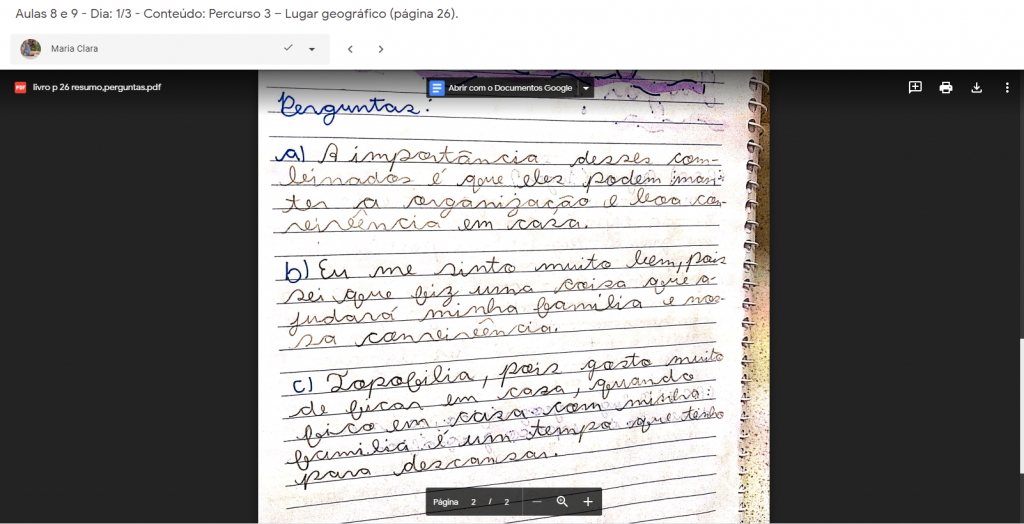 Aulas 8 e 9 - Dia: 1/3 - Conteúdo: Percurso 3 – Lugar geográfico (página 26).
Maria Clara
livro p 26 resumo,perguntas.pdf
Abrir com o Documentos Google
Perguntas:
a) A importância desses com-
binados é que eles podem man-
ter a organização e boa con-
vivência em casa.
b) Eu me sinto muito bem, pois
sei que fiz uma coisa que a-
judará minha família e nos-
sa convivência.
c) Topofilia, pois gosto muito
de ficar em casa, quando
fico em casa com minha
família é um tempo que tenho
para descansar.
Página 2 / 2